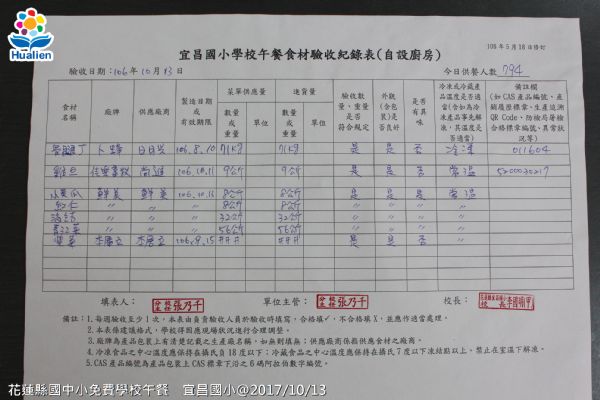 Hualien
106年5月18日修訂
宜昌國小學校午餐食材驗收紀錄表(自設廚房)
驗收日期:106年10月13日
今日供餐人數 794
食材名稱 廠牌 供應廠商 製造日期或有效期限 菜單供應量 進貨量 驗收數量、重量是否符合規定 外觀(含包裝)是否良好 是否有異味 冷凍或冷藏產品溫度是否適當(含如為冷凍產品事先解凍,其溫度是否適當) 備註欄(如CAS產品編號、產銷履歷標章、生產追溯QR Code、防檢局屠檢合格標章編號、異常狀況等)
數量或重量 單位 數量或重量 單位
106.8.10 71Kg 71Kg 是 是 否 冷凍 011604
106.10.11 9公斤 9公斤 是 是 否 常溫
小黃瓜 鮮美 鮮美 106.10.13 8公斤 8公斤 是 是 否 常溫
〃 〃 〃 8公斤 8公斤 〃 〃 〃 〃
〃 〃 〃 32公斤 32公斤 〃 〃 〃 〃
〃 〃 〃 56公斤 56公斤 〃 〃 〃 〃
106.9.15 是 是 否 〃
填表人: 張乃千 單位主管: 張乃千 校長:
備註:1.每週驗收至少1次,本表由負責驗收人員於驗收時填寫,合格填✓,不合格填X,並應作適當處理。
2.本表係建議格式,學校得因應現場狀況進行合理調整。
3.廠牌為產品包裝上有清楚記載之生產廠名稱,如無則填無;供應廠商係指供應食材之廠商。
4.冷凍食品之中心溫度應保持在攝氏負18度以下;冷藏食品之中心溫度應保持在攝氏7度以下凍結點以上,禁止在室溫下解凍。
5.CAS產品編號為產品包裝上CAS標章下沿之6碼阿拉伯數字編號。
花蓮縣國中小免費學校午餐 宜昌國小@2017/10/13